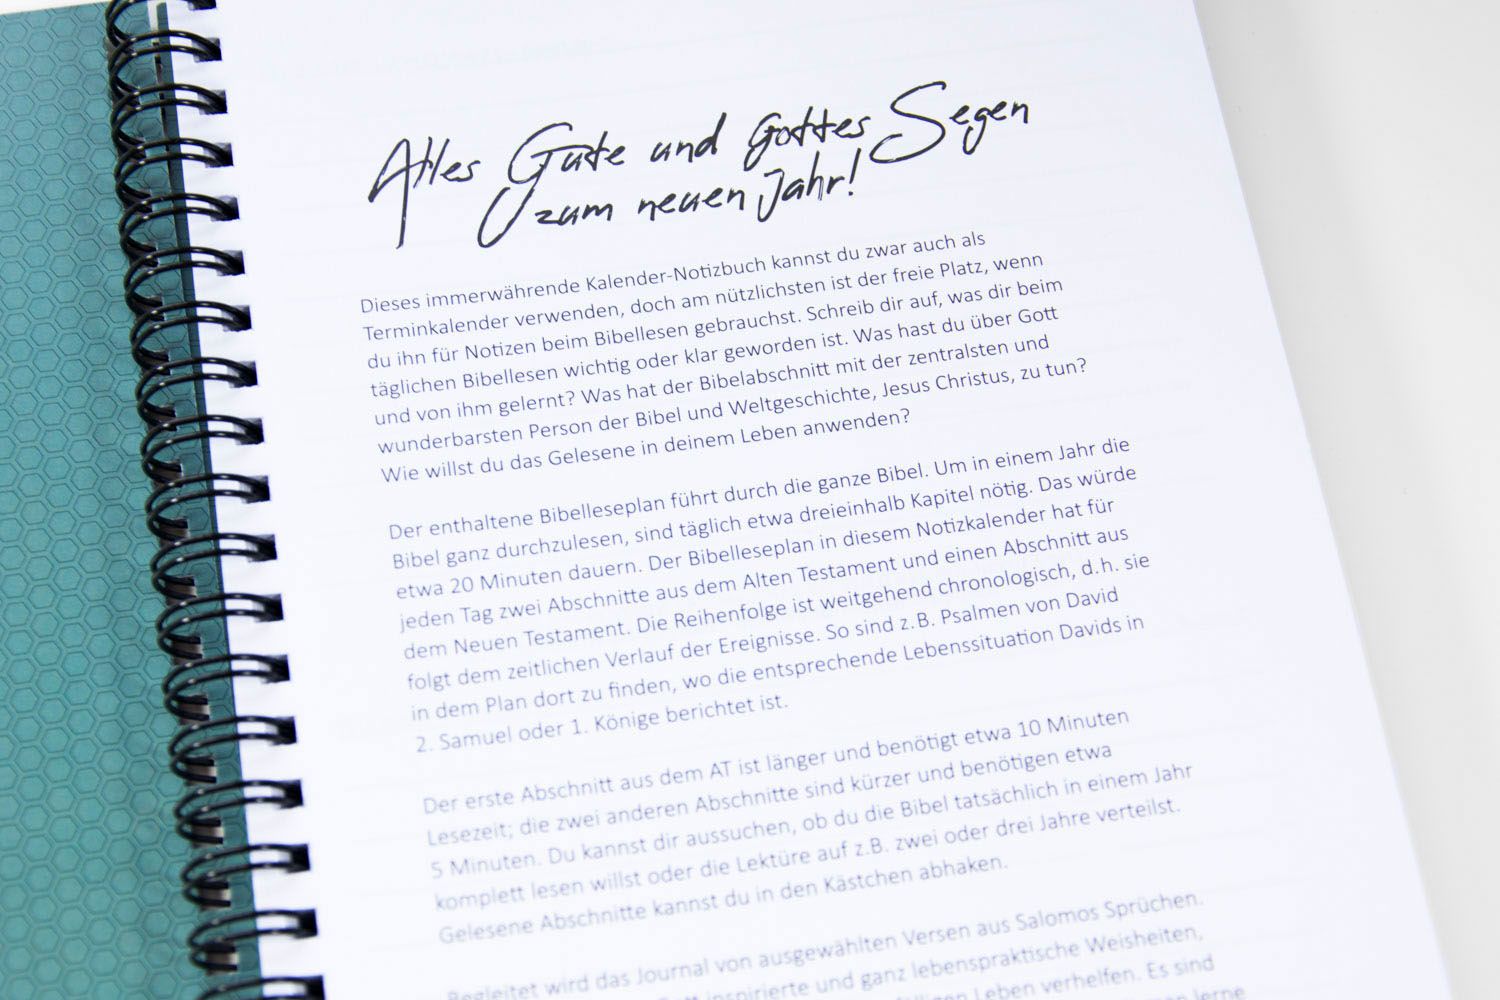 Alles Gute und Gottes Segen
zum neuen Jahr!
Dieses immerwährende Kalender-Notizbuch kannst du zwar auch als
Terminkalender verwenden, doch am nützlichsten ist der freie Platz, wenn
du ihn für Notizen beim Bibellesen gebrauchst. Schreib dir auf, was dir beim
täglichen Bibellesen wichtig oder klar geworden ist. Was hast du über Gott
und von ihm gelernt? Was hat der Bibelabschnitt mit der zentralsten und
wunderbarsten Person der Bibel und Weltgeschichte, Jesus Christus, zu tun?
Wie willst du das Gelesene in deinem Leben anwenden?
Der enthaltene Bibelleseplan führt durch die ganze Bibel. Um in einem Jahr die
Bibel ganz durchzulesen, sind täglich etwa dreieinhalb Kapitel nötig. Das würde
etwa 20 Minuten dauern. Der Bibelleseplan in diesem Notizkalender hat für
jeden Tag zwei Abschnitte aus dem Alten Testament und einen Abschnitt aus
dem Neuen Testament. Die Reihenfolge ist weitgehend chronologisch, d.h. sie
folgt dem zeitlichen Verlauf der Ereignisse. So sind z.B. Psalmen von David
in dem Plan dort zu finden, wo die entsprechende Lebenssituation Davids in
2. Samuel oder 1. Könige berichtet ist.
Der erste Abschnitt aus dem AT ist länger und benötigt etwa 10 Minuten
Lesezeit; die zwei anderen Abschnitte sind kürzer und benötigen etwa
5 Minuten. Du kannst dir aussuchen, ob du die Bibel tatsächlich in einem Jahr
komplett lesen willst oder die Lektüre auf z.B. zwei oder drei Jahre verteilst.
Gelesene Abschnitte kannst du in den Kästchen abhaken.
Begleitet wird das Journal von ausgewählten Versen aus Salomos Sprüchen.
inspirierte und ganz lebenspraktische Weisheiten,
Leben verhelfen. Es sind
lerne